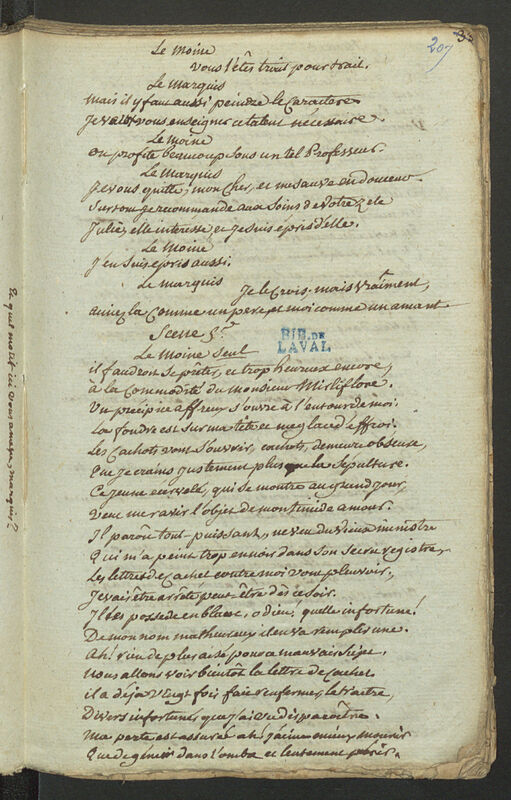 207
Le Moine
Vous l'êtes trait pour trait.
Le Marquis
mais il y faut aussi peindre le Caractere
Je vais vous enseigner ce talent nécessaire.
Le Moine
on profite beaucoup sous un tel Professeur.
Le Marquis
Je vous quitte, mon Cher, et me sauve en douceur
surtout je recommande aux soins de votre zele
Julie, elle interesse, et je suis epris d'elle.
Le Moine
J'en suis epris aussi.
Le marquis
Je le Crois. mais vraiment,
aimez la Comme un pere, et moi comme un amant
Scene 5.e
Le Moine seul
il faudra se prêter, et trop heureux encore,
à la Commodité du monsieur Mirliflore.
Un précipice affreux s'ouvre à l'entour de moi.
la foudre est sur ma tête et me glace d'effroi.
Les Cachots vont s'ouvrir, cachots, demeure obscure,
Que je crains justement plus que la Sépulture.
Ce jeune écervelé, qui se montre au grand jour,
Veut me ravir l'objet de mon timide amour.
Il paroît tout puissant, neveu du vieux ministre
Qui m'a peint trop en noir dans son secret registre,
Les lettres de Cachet contre moi vont pleuvoir,
Je vais être arrêté peut être dès ce soir.
Il les possede en blanc, o dieu! quelle infortune!
De mon nom malheureux il en va remplir une.
Ah! rien de plus aisé pour ce mauvais
Nous allons voir bientôt la lettre de Cachet.
il a déjà Vingt fois fait renfermer, le traitre,
Divers infortunés que j'ai vu disparoître.
Ma perte est assurée ah! j'aime mieux mourir
Que de gémir dans l'ombre et lentement périr.
BIB. DE
LAVAL
quel motif ici vous amene, marquis?